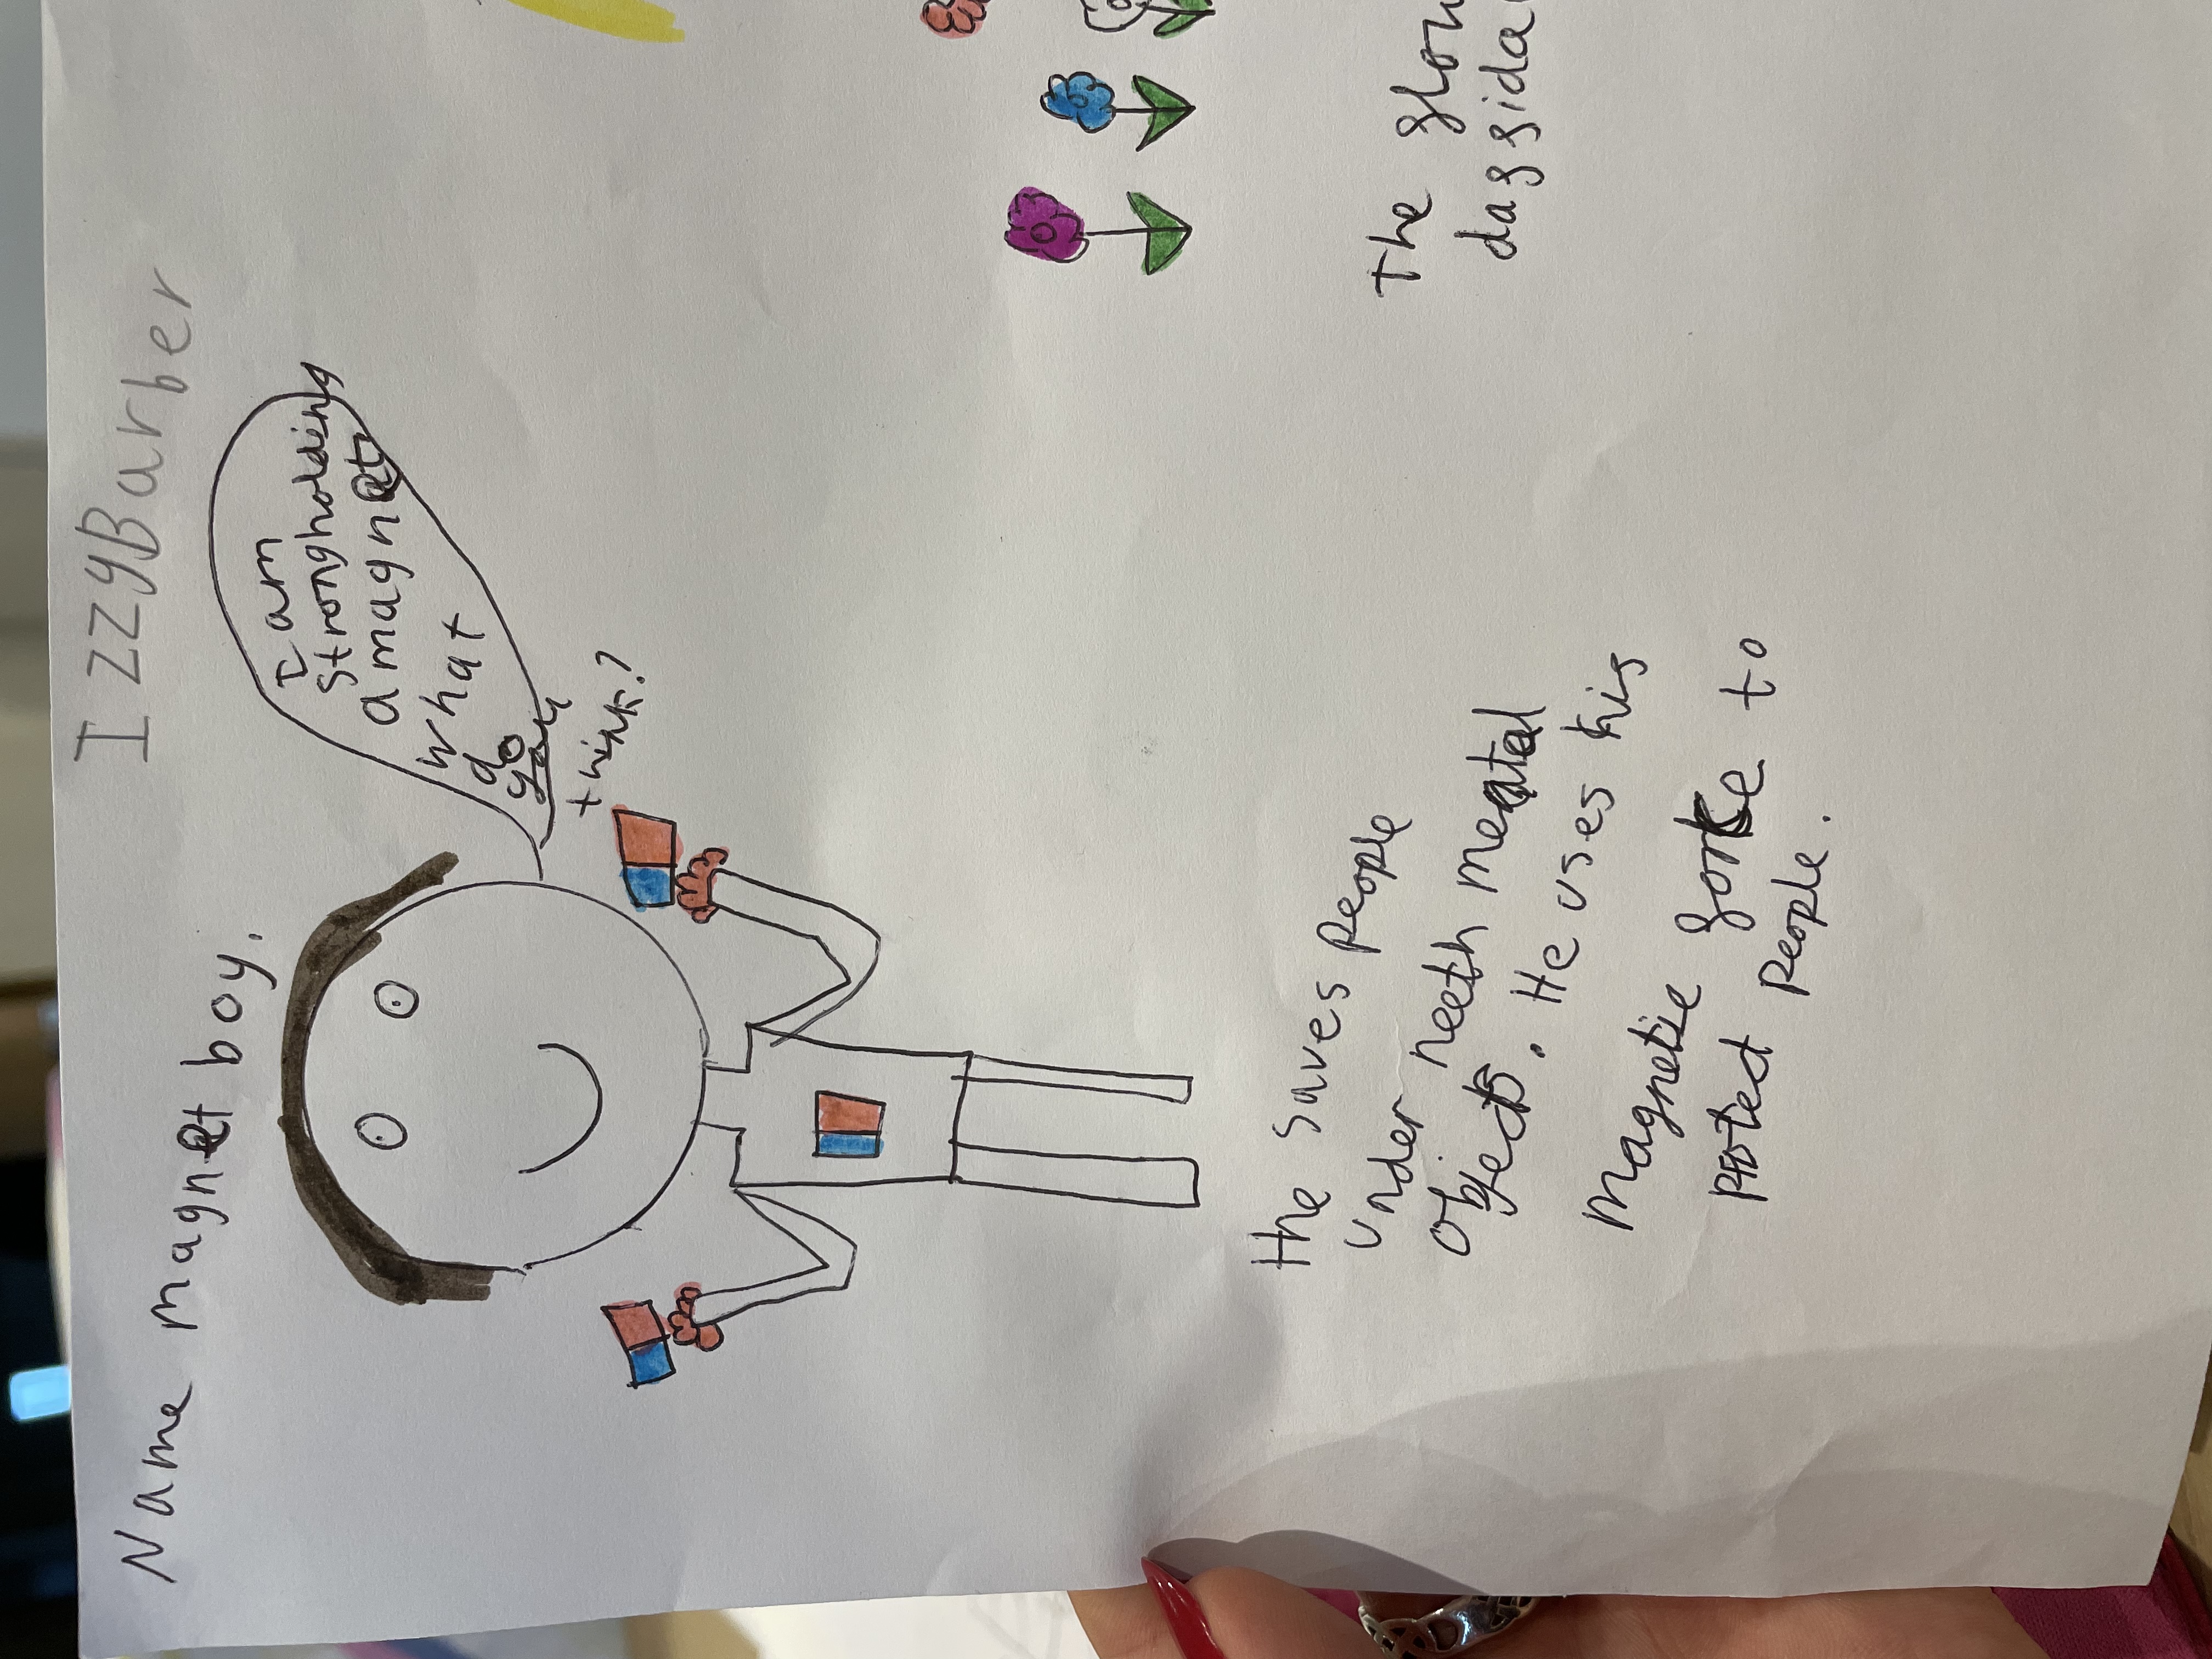 IzzyBarber
Name magnet boy.
I am
strong holding
a magnet
what
do
you
think?
the saves people
under neeth meatal
objects. He uses his
magnetic forke to
protect people.
the